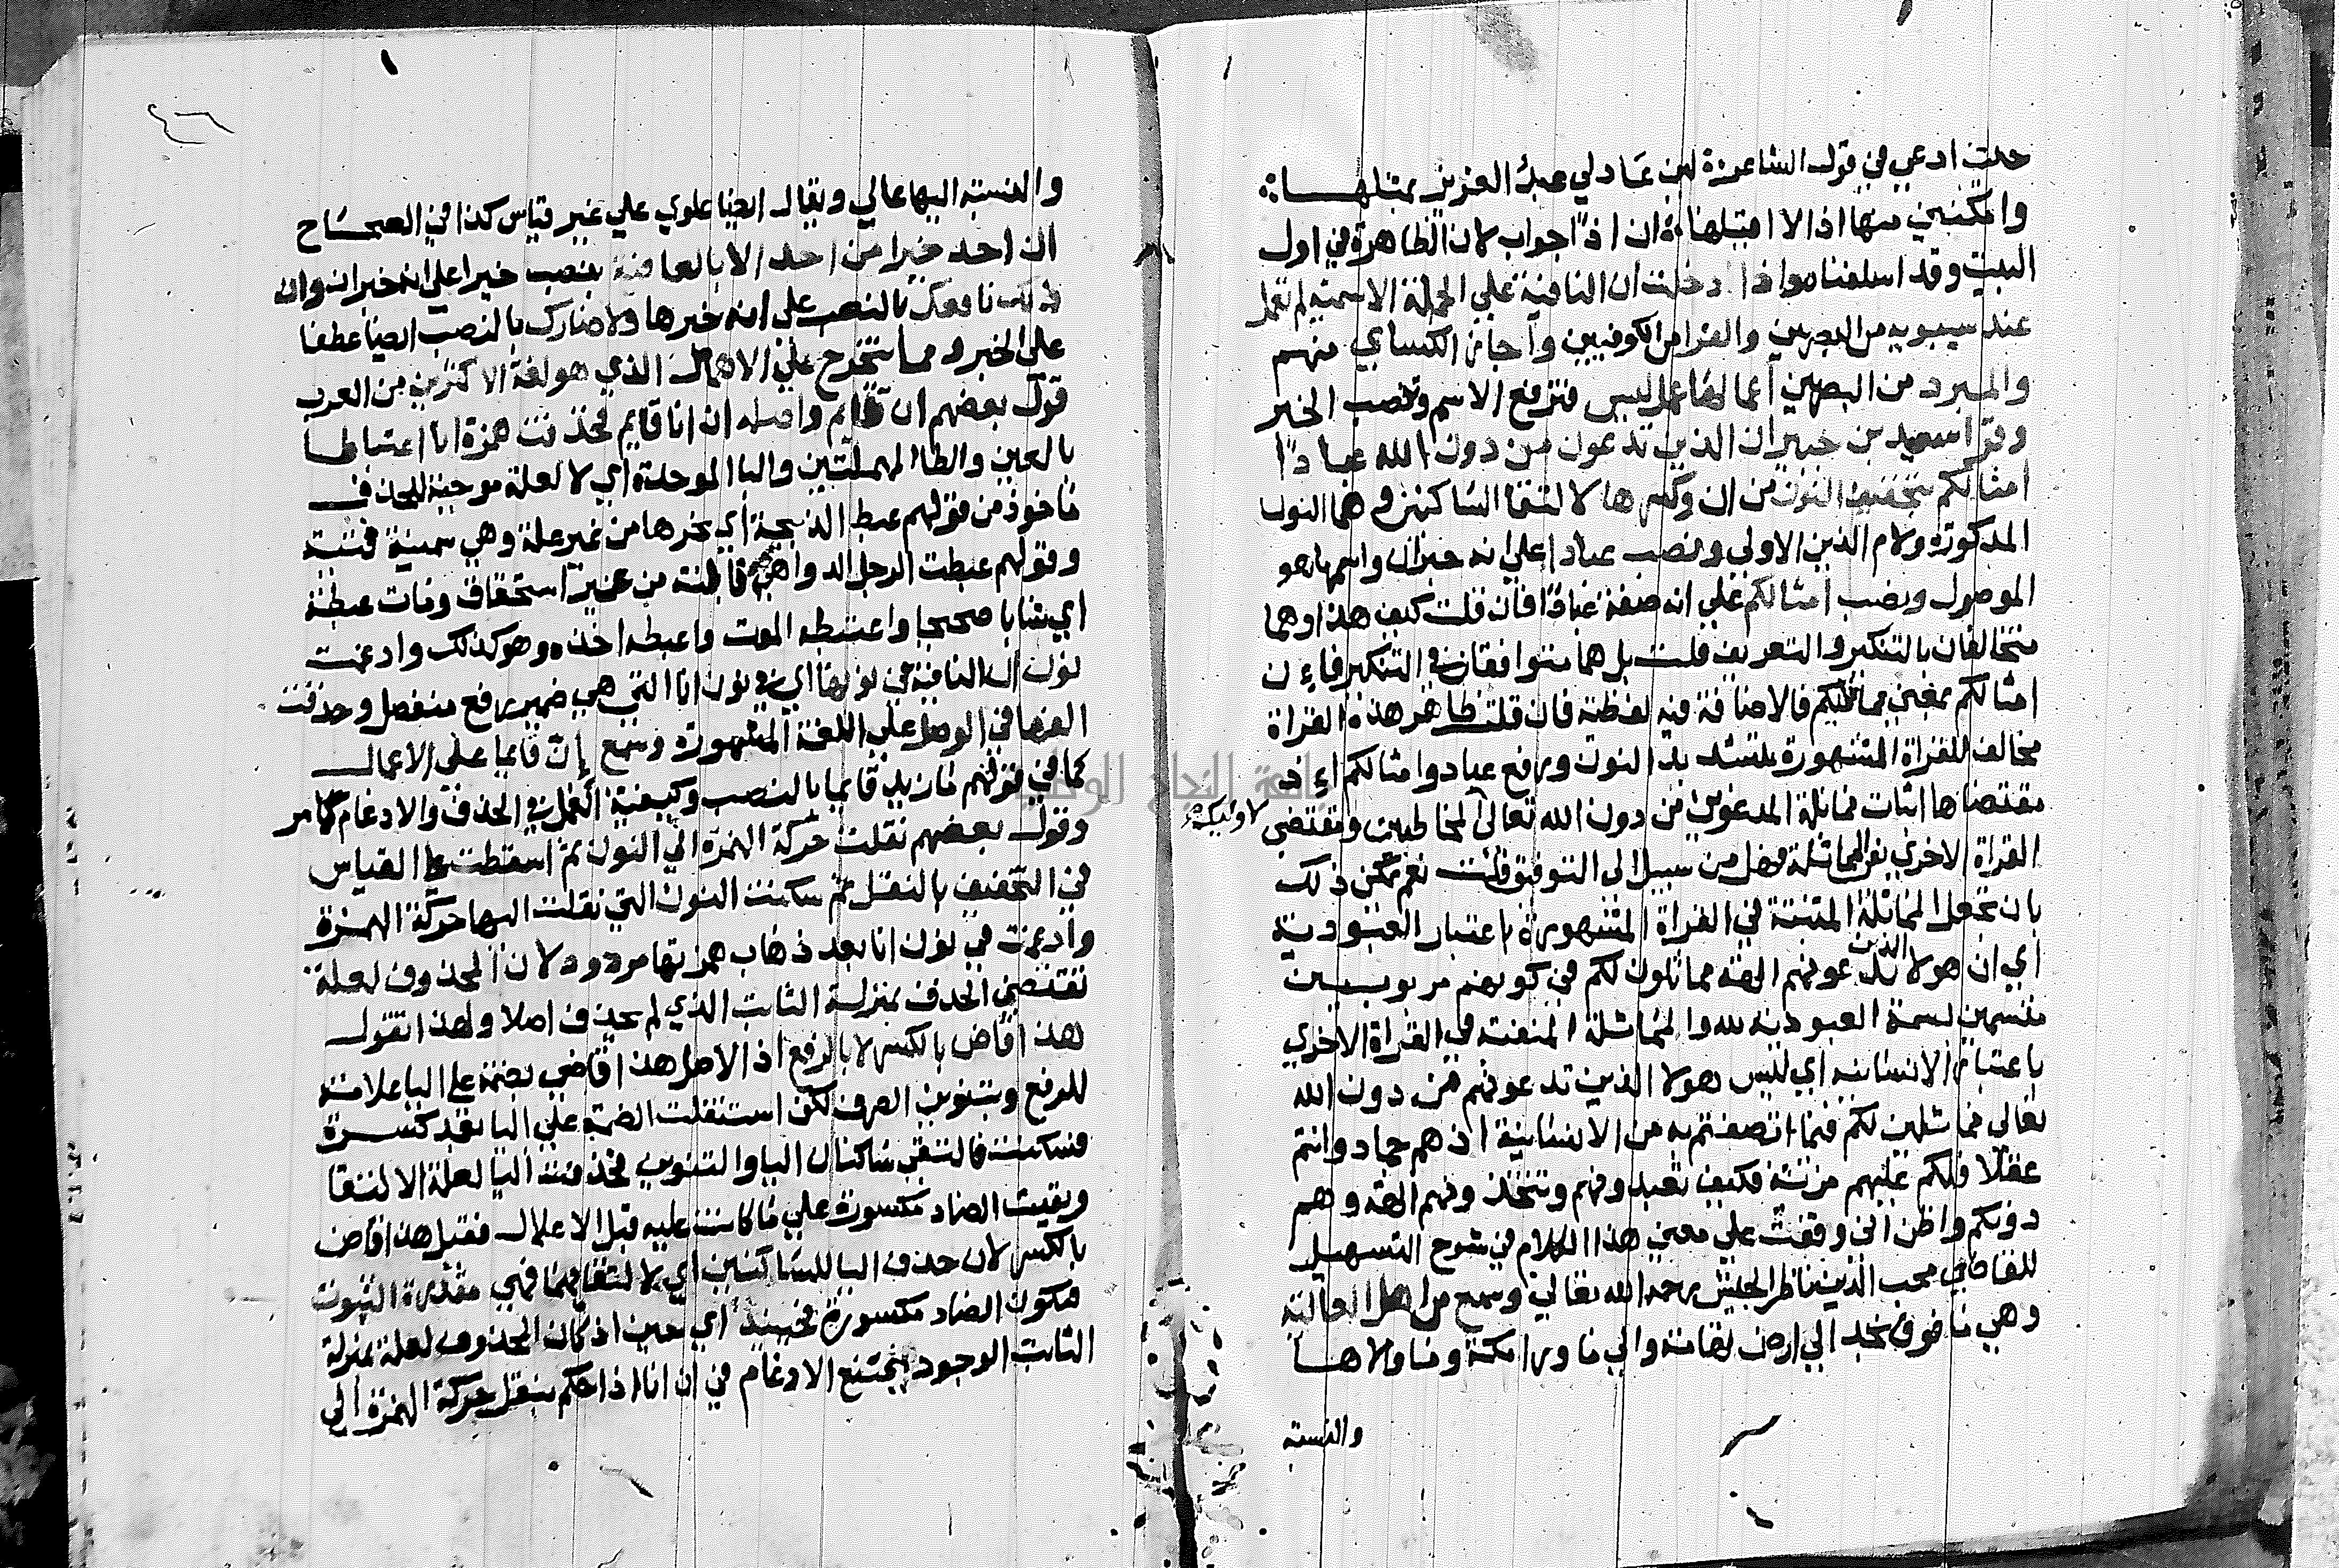 حلت ادعي في قول الشاعر لين عاد لي عبد العزيز بمثلها
وامكنني منها اذا لا اقيلها ان اذا جواب لان الظاهرة في اول
البيت وقد اسلفنا واذا دخلت ان النافية علي الجملة الاسمية لم تعمل
عند سيبويه من البصريين والفرا من الكوفيين واجاز الكساي منهم
والمبرد من البصريين اعمالها عمل ليس فترفع الاسم وتنصب الخبر
وقرا سعيد بن جبير ان الذين تدعون من دون الله عبادا
امثالكم بتخفيف النون من ان وكسرها لالتقا الساكنين وهما النون
المذكورة ولام الذين الاولي ونصب عبادا علي انه خبر ان واسمها هو
الموصول ونصب امثالكم علي انه صفة عبادا فان قلت كيف هذا وهما
متخالفان بالتنكير والتعريف قلت بل هما متوافقان في التنكير فان
امثالكم بمعني مماثليكم فالاضافة فيه لفظية فان قلت ظاهر هذه القراة
مخالف للقراة المشهورة بتشديد النون ورفع عباد وامثالكم اذ
مقتضاها اثبات مماثلة المدعوين من دون الله تعالي للمخاطبين ومقتضي
القراة الاخري نفي المماثلة فهل من سبيل الي التوفيق قلت نعم يمكن ذلك
بان تجعل المماثلة المثبتة في القراة المشهورة باعتبار العبودية
اي ان هولا الذين تدعونهم الهة مماثلون لكم في كونهم مربوبين
متسمين بسمة العبودية لله والمماثلة المنفية في القراة الاخري
باعتبار الانسانية اي ليس هولا الذين تدعونهم من دون الله
تعالي مماثلين لكم فيما اتصفتم به من الانسانية اذ هم جماد وانتم
عقلا فلكم عليهم مزية فكيف تعبدونهم وتتخذونهم الهة وهم
دونكم واظن اني وقفت علي معني هذا الكلام في شرح التسهيل
للقاضي محب الدين ناظر الجيش رحمه الله تعالي وسمع من اهل العالية
وهي ما فوق نجد الي ارض تهامة والي ما ورا مكة وما والاها
والنسبة
والنسبة اليها عالي ويقال ايضا علوي علي غير قياس كذا في الصحاح
ان احد خيرا من احد الا بالعافية بنصب خيرا علي انه خبر ان وان
ذلك نافعك بالنصب علي انه خبرها ولا ضارك بالنصب ايضا عطفا
علي الخبر ومما يتخرج علي الاهمال الذي هو لغة الاكثرين من العرب
قول بعضهم ان قايم واصله ان انا قايم فحذفت همزة انا اعتباطا
بالعين والطا المهملتين والبا الموحدة اي لا لعلة موجبة للحذف
ماخوذ من قولهم عبط الذبيحة اي نحرها من غير علة وهي سمينة فتية
وقولهم عبطت الرجل الدواهي نالته من غير استحقاق ومات عبطة
اي شابا صحيحا واعتبطه الموت واعبطه اخذه وهو كذلك وادغمت
نون ان النافية في نونها اي في نون انا التي هي ضمير رفع منفصل وحذفت
الفها في الوصل علي اللغة المشهورة وسمع ان قايما علي الاعمال
كما في قولهم ما زيد قايما بالنصب وكيفية العمل في الحذف والادغام كما مر
وقول بعضهم نقلت حركة الهمزة الي النون ثم اسقطت علي القياس
في التخفيف بالنقل ثم سكنت النون التي نقلت اليها حركة الهمزة
وادغمت في نون انا بعد ذهاب همزتها مردود لان المحذوف لعلة
تقتضي الحذف بمنزلة الثابت الذي لم يحذف اصلا ولهذا تقول
هذا قاض بالكسر لا بالرفع اذ الاصل هذا قاضي بضمة علي اليا علامة
للرفع وبتنوين الصرف لكن استثقلت الضمة علي اليا بعد كسرة
فسكنت فالتقي ساكنان اليا والتنوين فحذفت اليا لعلة الالتقا
وبقيت الضاد مكسورة علي ما كانت عليه قبل الاعلال فقيل هذا قاض
بالكسر لان حذف اليا للساكنين اي لالتقايهما فهي مقدرة الثبوت
فتكون الضاد مكسورة فحينيذ اي حين اذ كان المحذوف لعلة بمنزلة
الثابت الوجود يمتنع الادغام في ان انا اذا حكم بنقل حركة الهمزة الي